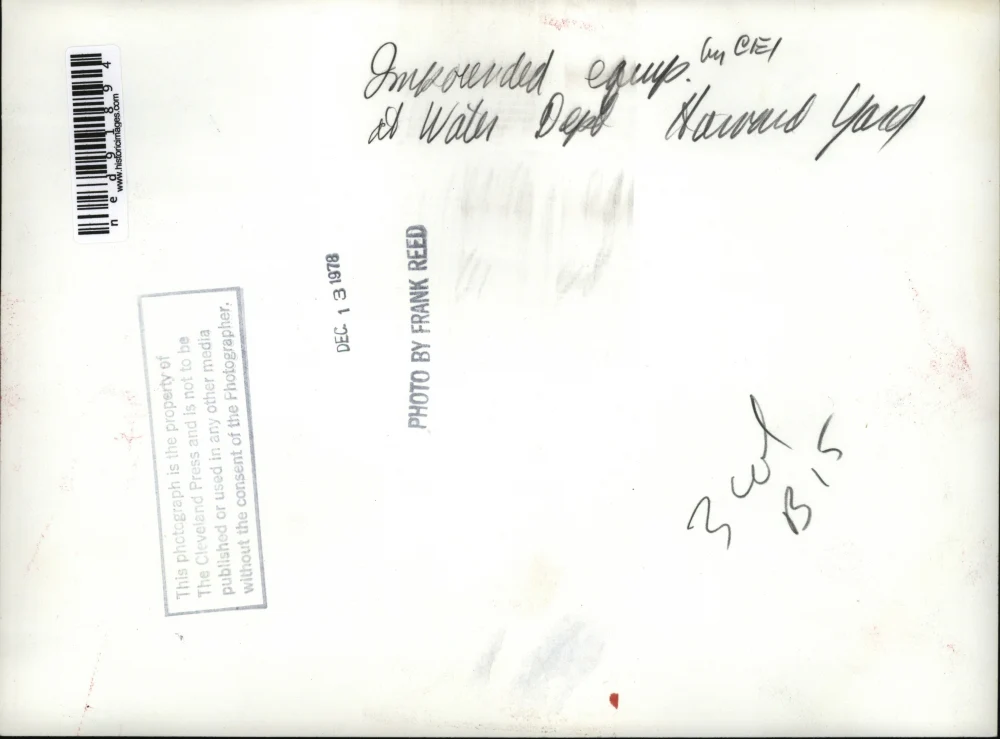 Impounded equip. by CEI
at Water Dept Harvard Yard
ned91894
www.historicimages.com
DEC. 13 1978
PHOTO BY FRANK REED
This photograph is the property of
The Cleveland Press and is not to be
published or used in any other media
without the consent of the Photographer.
3 col
B15